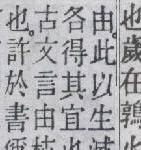 也歲在鶉
由此以生
各得其宜也
古文言由
也許於書